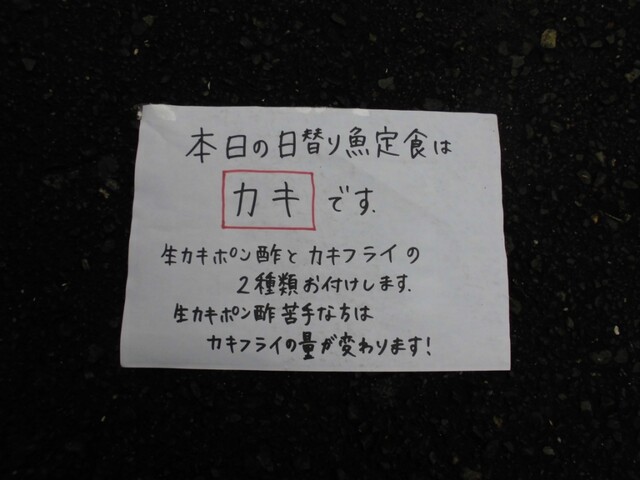 本日の日替り魚定食は
カキ です.
生カキポン酢と カキフライの
2種類お付けします.
生カキポン酢苦手な方は
カキフライの量が変わります!